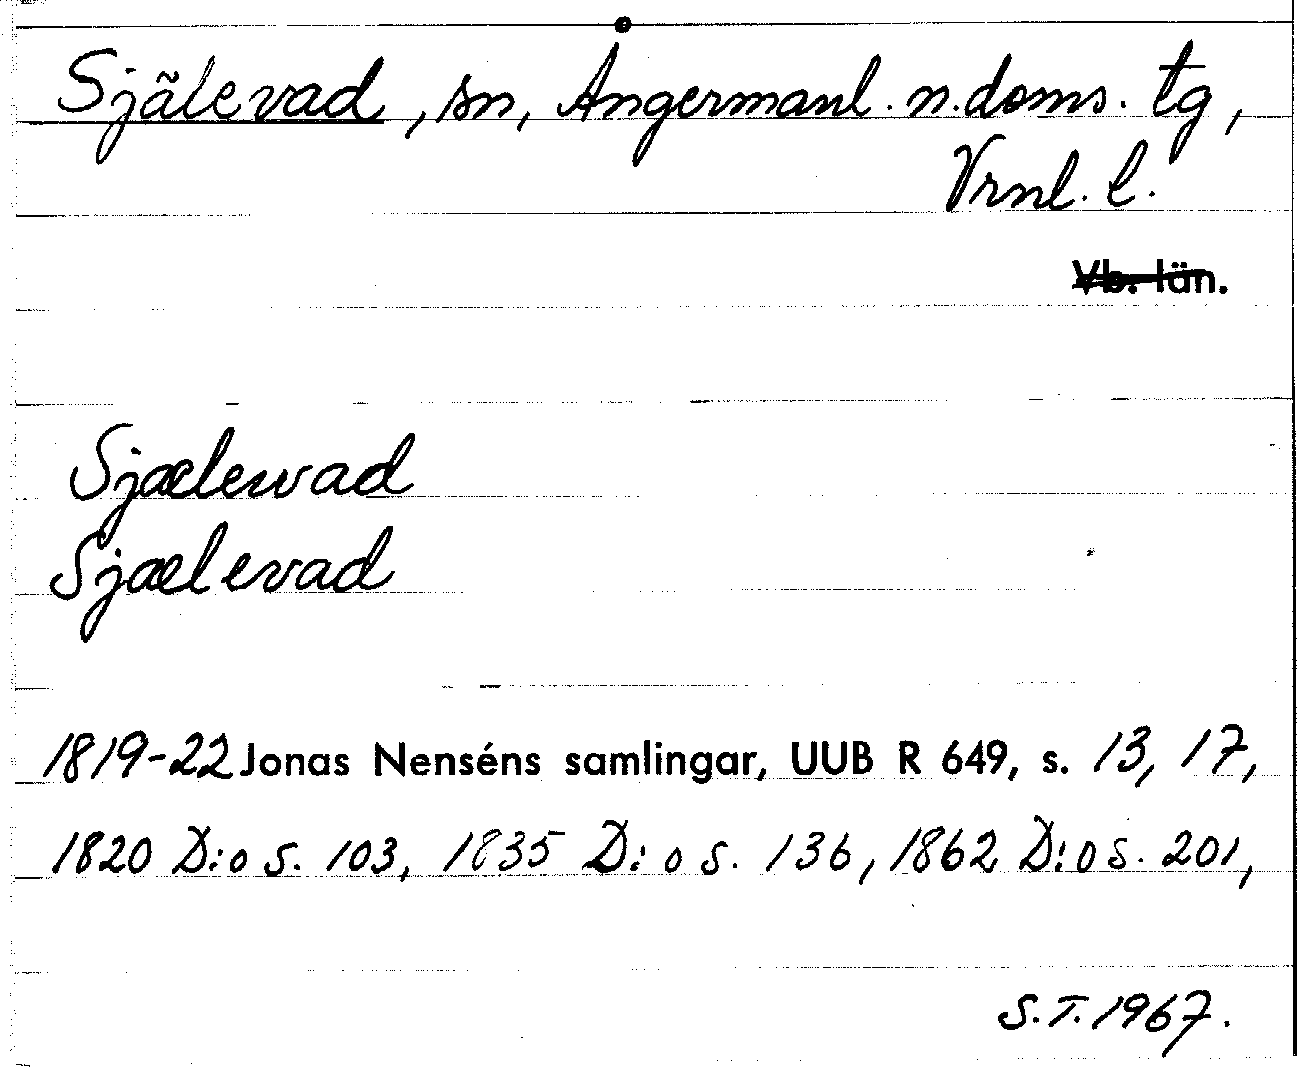 Själevad, sn, Ångermanl. n. doms. tg,
Vrnl. l.
Vb. län.
Sjælewad
Sjælevad
1819-22 Jonas Nenséns samlingar, UUB R 649, s. 13, 17,
1820 D:o s. 103, 1835 D:o s. 136, 1862 D:o s. 201,
S.T. 1967.